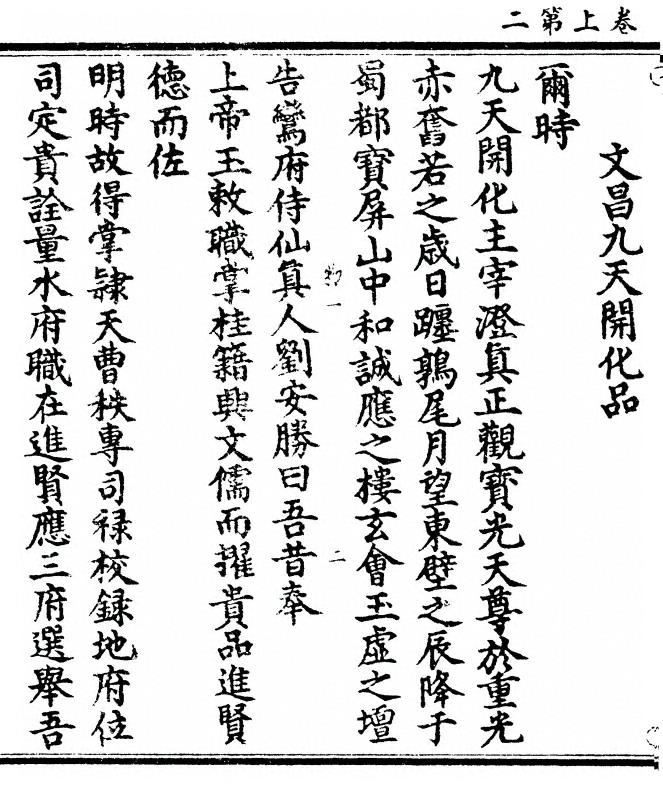 卷上第二
文昌九天開化品
爾時
九天開化主宰澄眞正觀寶光天尊於重光
赤奮若之歲日躔鶉尾月望東壁之辰降于
蜀都寶屏山中和誠應之樓玄會玉虛之壇
告鸞府侍仙眞人劉安勝曰吾昔奉
上帝玉敕職掌桂籍興文儒而擢貴品進賢
德而佐
明時故得掌隷天曹秩專司祿校録地府位
司定貴詮量水府職在進賢應三府選舉吾